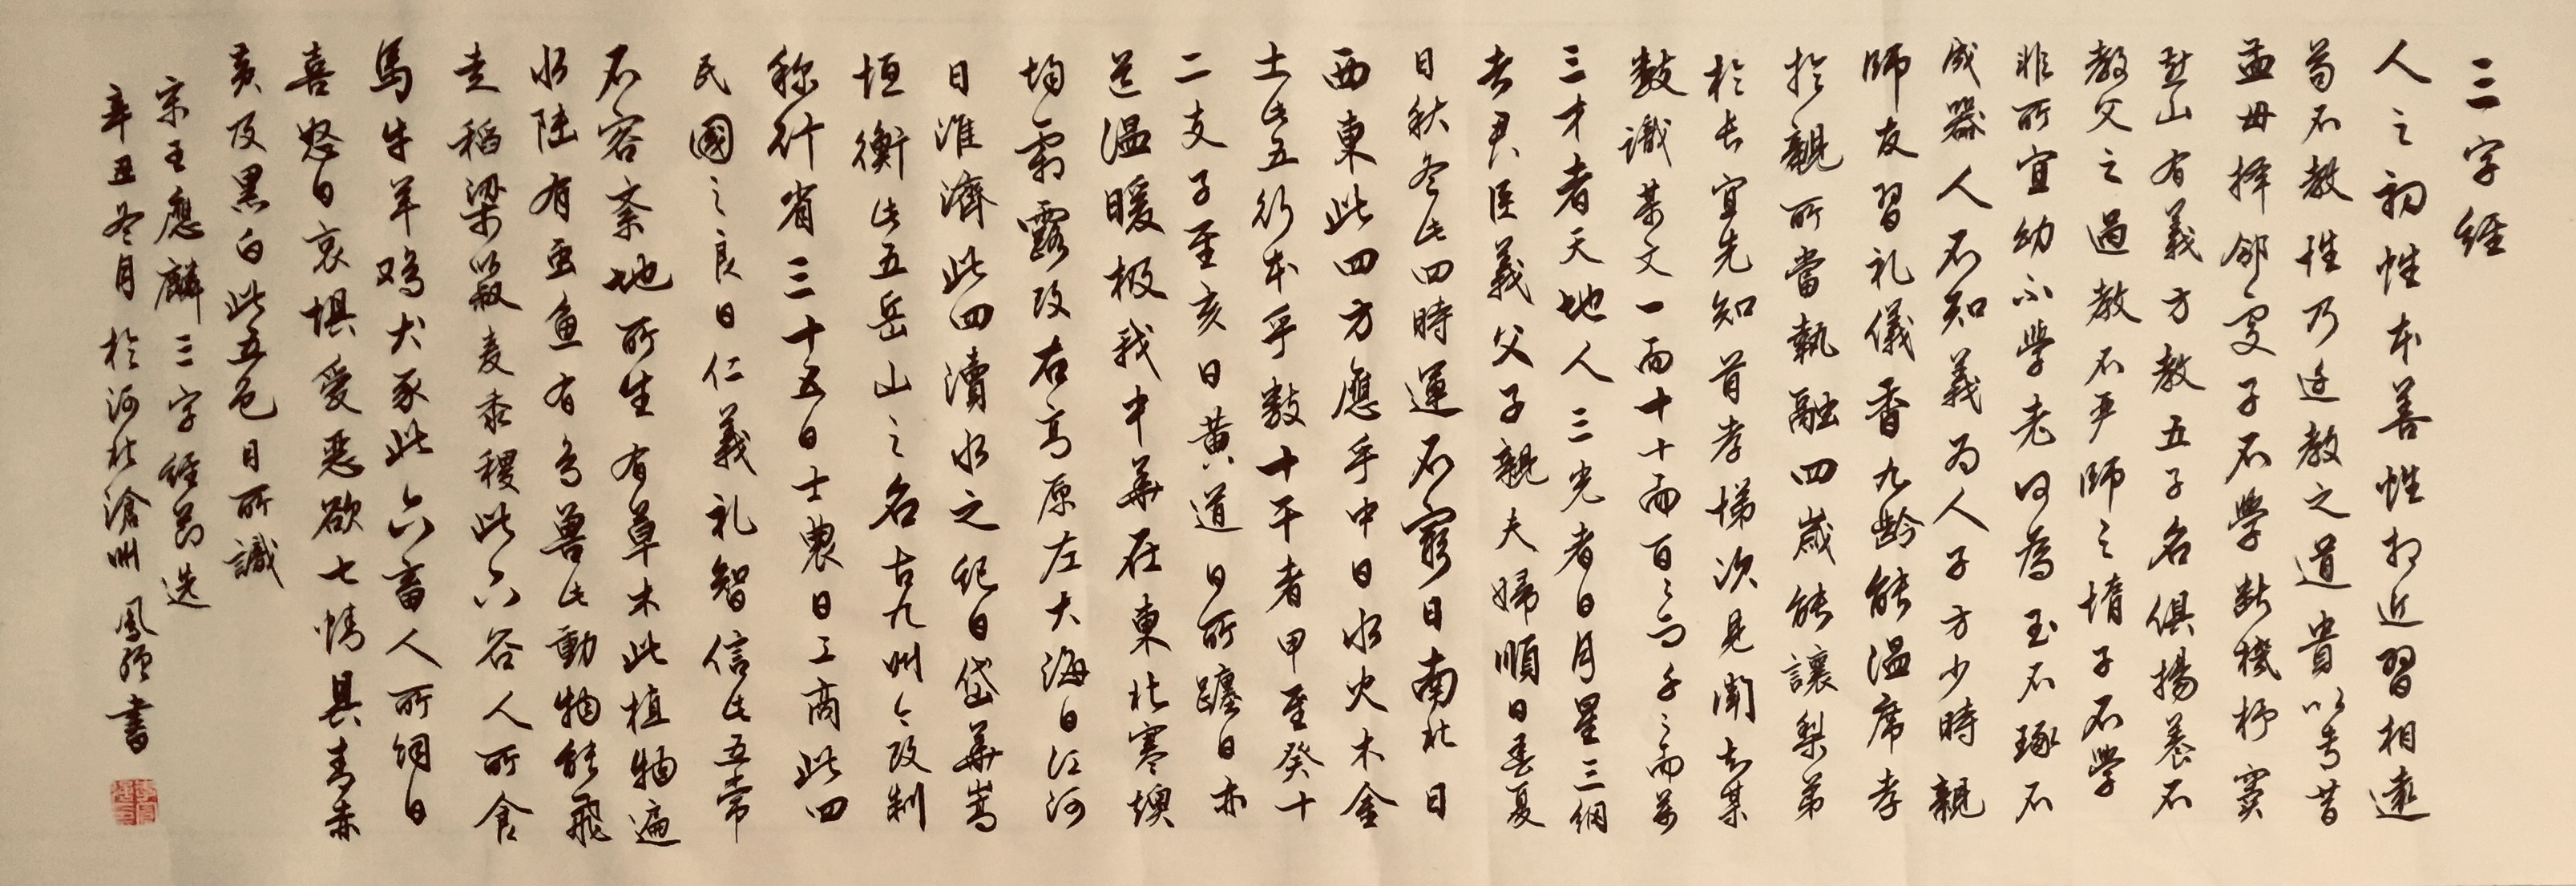 三字经
人之初性本善性相近習相遠
苟不教性乃迁教之道貴以专昔
孟母择鄰處子不學断機杼竇
燕山有義方教五子名俱揚養不
教父之過教不严師之惰子不學
非所宜幼不學老何為玉不琢不
成器人不知義为人子方少時親
師友習礼儀香九龄能温席孝
於親所當執融四歲能讓梨弟
於长宜先知首孝悌次見聞知某
數識某文一而十十而百〻而千〻而萬
三才者天地人三光者日月星三綱
者君臣義父子親夫婦順曰春夏
曰秋冬此四時運不窮曰南北曰
西東此四方應乎中曰水火木金
土此五行本乎數十干者甲至癸十
二支子至亥曰黄道日所躔曰赤
道温暖极我中華在東北寒燠
均霜露改右高原左大海曰江河
曰淮濟此四瀆水之紀曰岱華嵩
恒衡此五岳山之名古九州今改制
称行省三十五曰士農曰工商此四
民國之良曰仁義礼智信此五常
不容紊地所生有草木此植物遍
水陆有虫鱼有鸟兽此動物能飛
走稻粱菽麦黍稷此六谷人所食
馬牛羊鸡犬豕此六畜人所饲曰
喜怒曰哀惧爱恶欲七情具青赤
黄及黑白此五色目所識
宋王應麟三字经节选
辛丑冬月於河北滄州 鳳强書